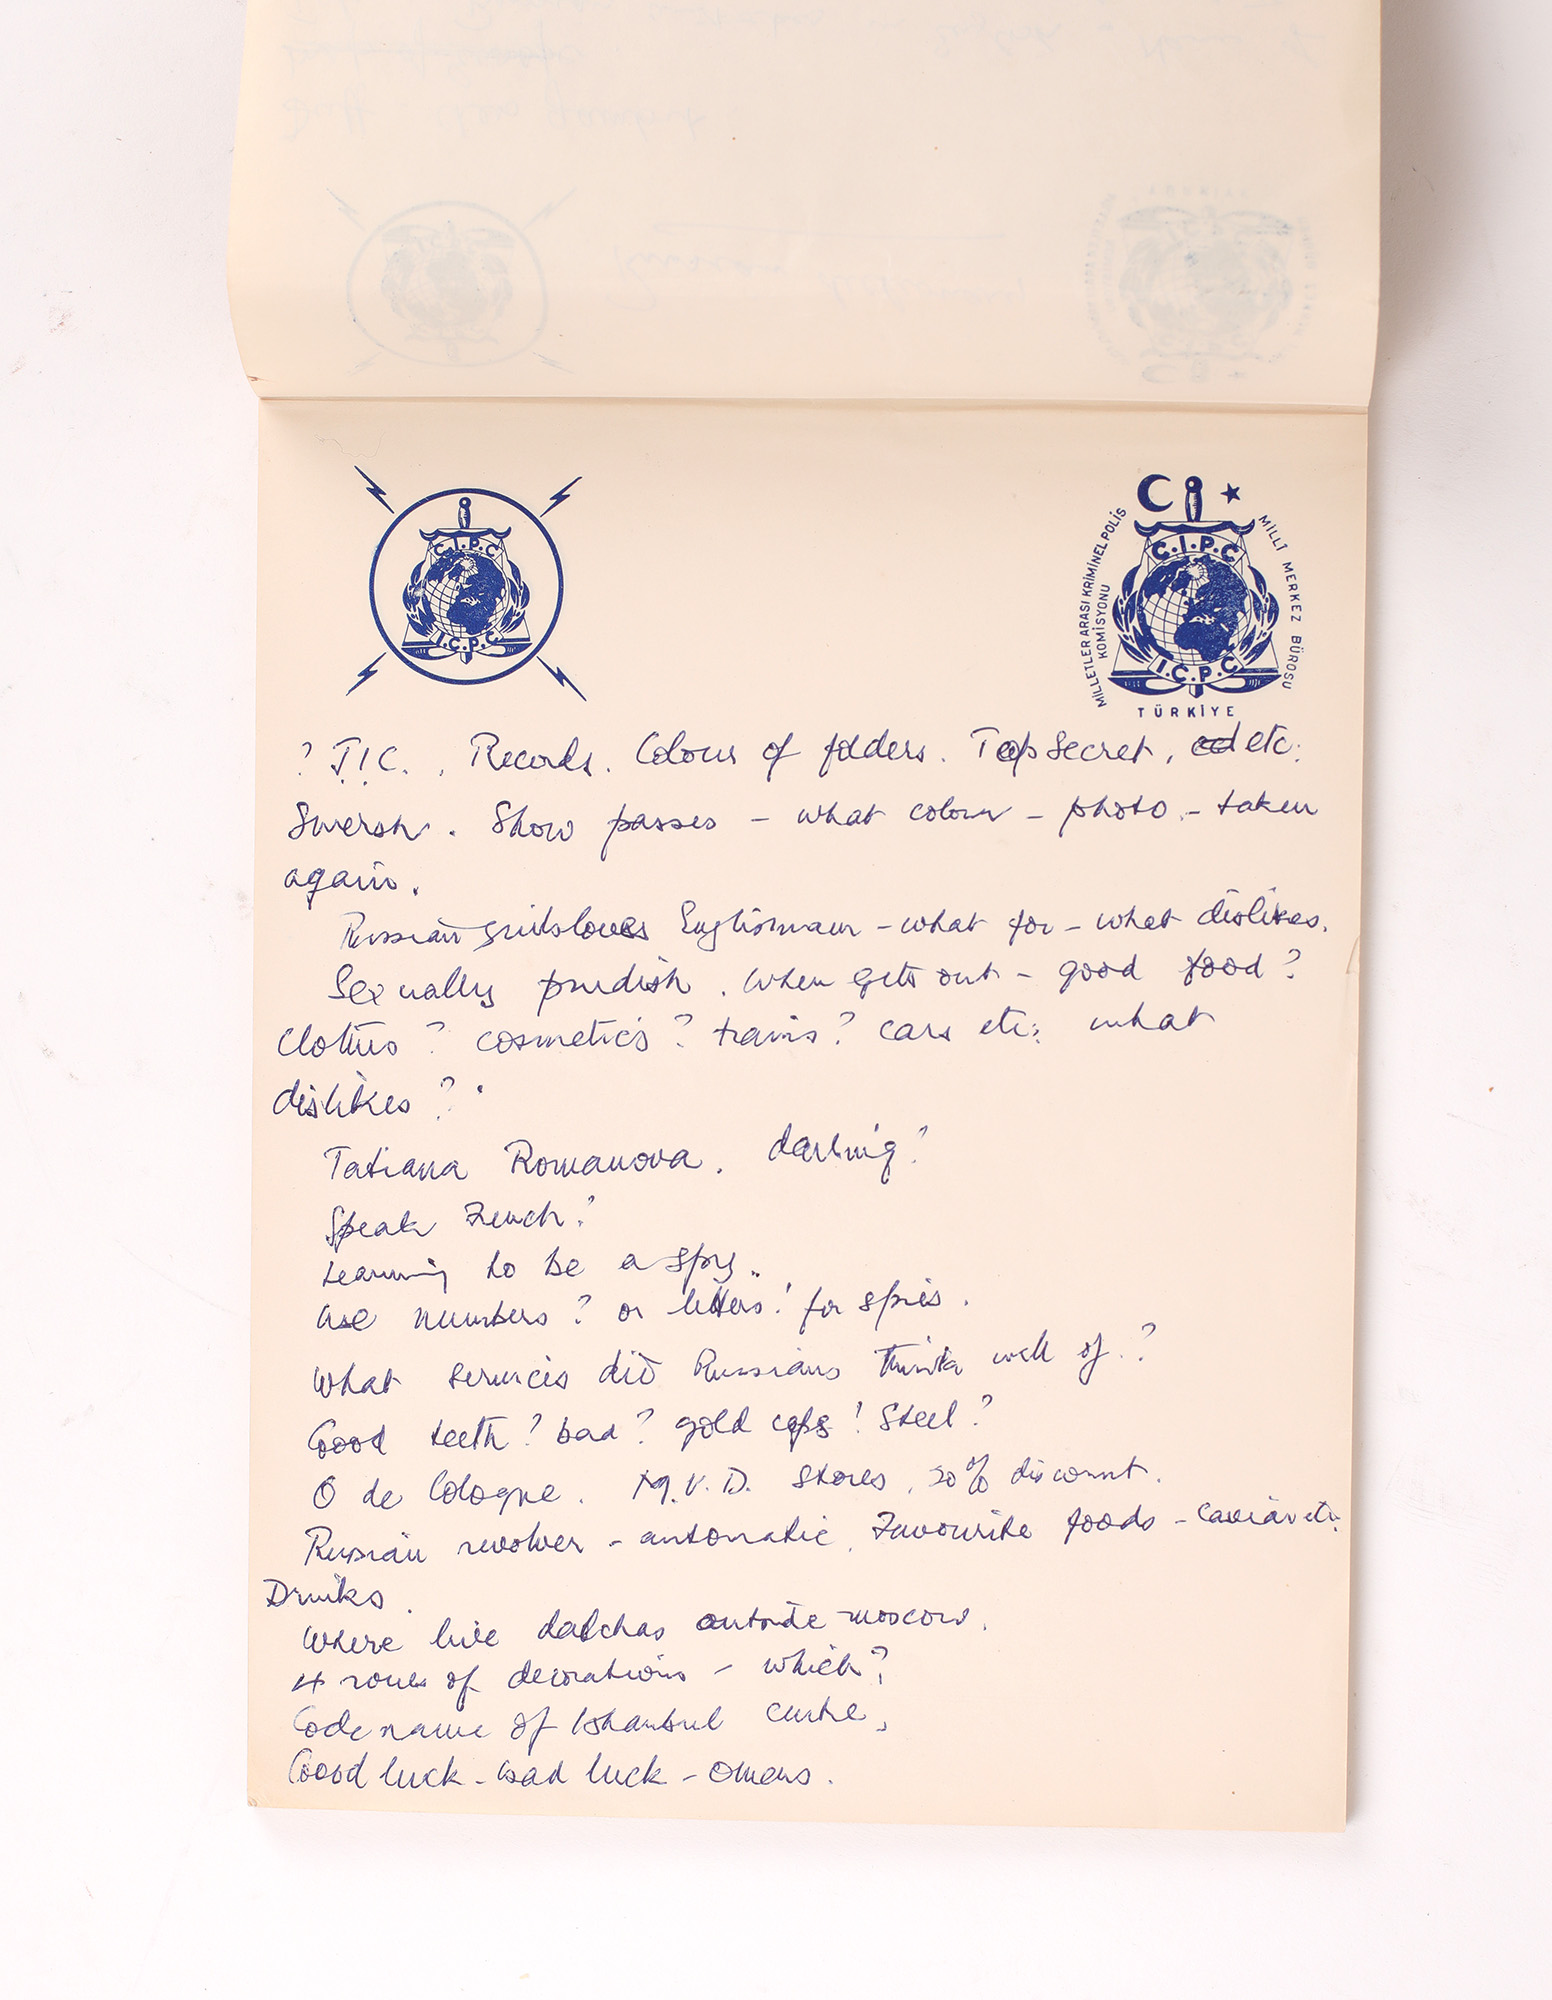 C.I.P.C
I.C.P.C
MİLLETLER ARASI KRİMİNEL POLİS
KOMİSYONU
C.I.P.C
I.C.P.C
MİLLİ MERKEZ BÜROSU
TÜRKİYE
? J.I.C. . Records. Colour of folders. Top Secret, etc.
Smersh. Show passes – what colour – photo – taken
again.
Russian girls loves Englishman – what for – what dislikes.
Sexually prudish. When gets out – good food?
Clothes? cosmetics? trains? cars etc: what
dislikes?
Tatiana Romanova. darling?
Speak French?
Learning to be a spy.
Use numbers? or letters? for spies.
What services did Russians think well of.?
Good teeth? bad? gold caps! Steel?
O de Cologne. M.V.D. stores, 20% discount.
Russian revolver – automatic. Favourite foods – caviar etc.
Drinks.
Where live datchas outside moscow.
4 rows of decorations – which?
Code name of Istanbul centre.
Good luck – bad luck – omens.